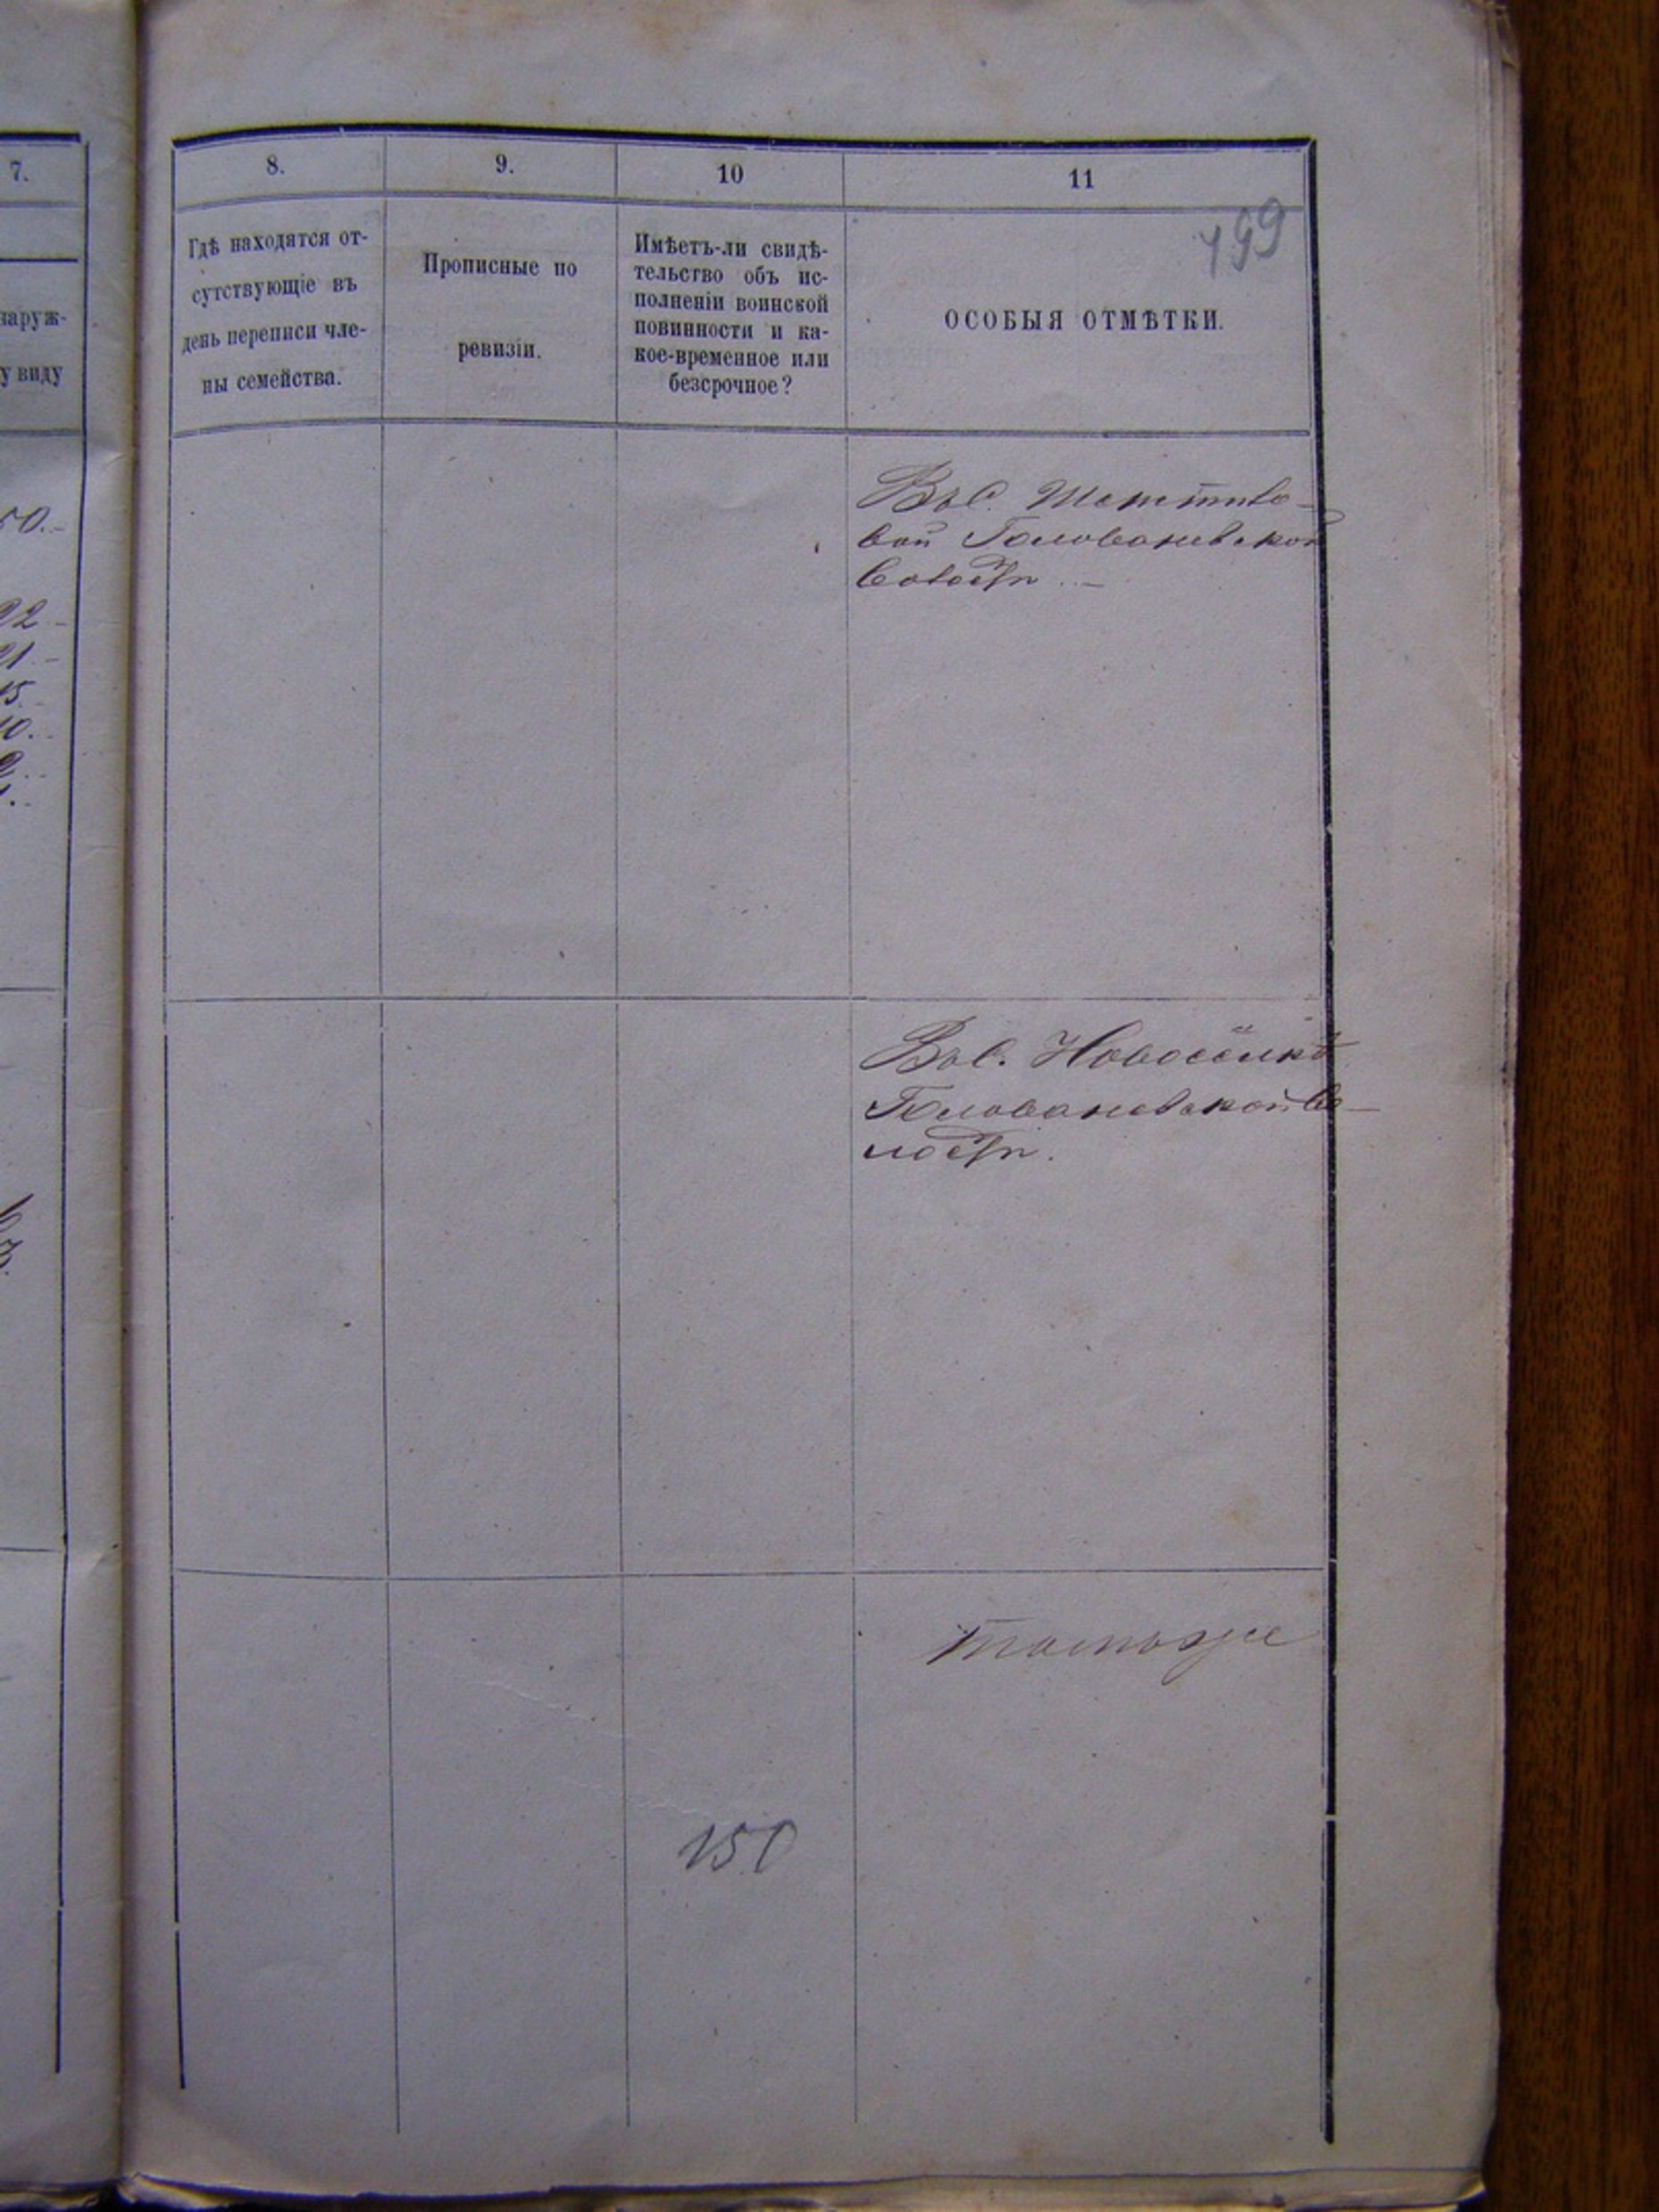 7.
8.
9.
10
11
199
наруж-
у виду
Гдѣ находятся от-
сутствующіе въ
день переписи чле-
ны семейства.
Прописные по
ревизіи.
Имѣетъ-ли свидѣ-
тельство объ ис-
полненіи воинской
повинности и ка-
кое-временное или
безсрочное?
ОСОБЫЯ ОТМѢТКИ.
50.-
22-
21.-
15.
10.
Въ с.
вой Голованевской
Волости.
Въ с. Новосёлкѣ
Голованевской Во-
лости.
тамъ же
150